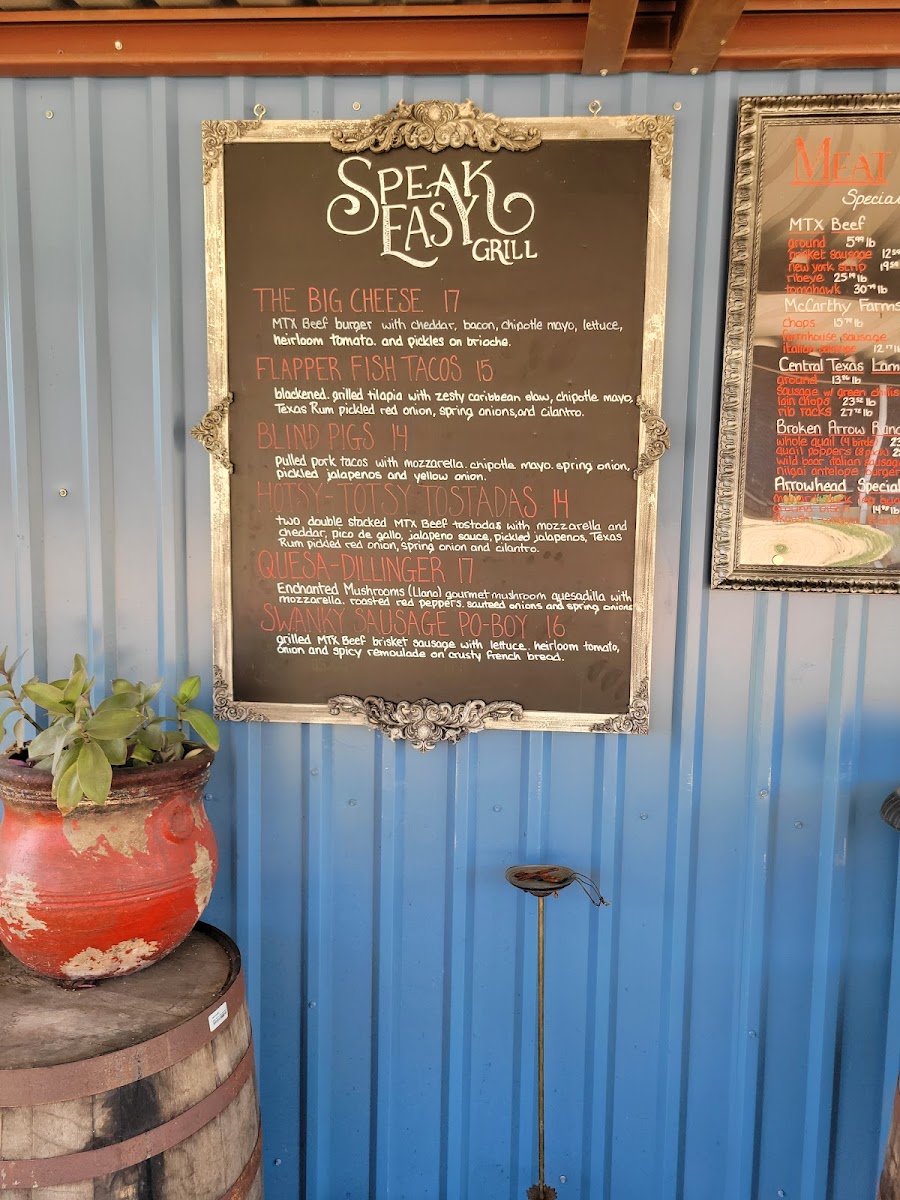 SPEAK
EASY
GRILL
THE BIG CHEESE 17
MTX Beef burger with cheddar, bacon, chipotle mayo, lettuce,
heirloom tomato. and pickles on brioche.
FLAPPER FISH TACOS 15
blackened. grilled tilapia with zesty caribbean slaw, chipotle mayo,
Texas Rum pickled red onion, spring onions, and cilantro.
BLIND PIGS 14
pulled pork tacos with mozzarella. chipotle mayo. spring onion,
pickled jalapenos and yellow onion.
HOTSY-TOTSY TOSTADAS 14
two double stacked MTX Beef tostadas with mozzarella and
cheddar, pico de gallo, jalapeno sauce, pickled jalapenos, Texas
Rum pickled red onion, spring onion and cilantro.
QUESA-DILLINGER 17
Enchanted Mushrooms (Llano) gourmet mushroom quesadilla with
mozzarella. roasted red peppers. sauteed onions and spring onions
SWANKY SAUSAGE PO-BOY 16
grilled MTX Beef brisket sausage with lettuce. heirloom tomato,
onion and spicy remoulade on crusty french bread.
MEAT
Specia
MTX Beef
ground 5.99 lb
brisket sausage
new york strip
ribeye 25 lb
tomahawk 30 lb
McCarthy Farms
chops 15 lb
farmhouse sausage
italian sausage 12
Central Texas Lam
ground 13 lb
sausage w/ green chilis
loin chops 23 lb
rib racks 27 lb
Broken Arrow Ranc
whole quail (4 birds)
quail poppers
wild boar italian sausage
nilgai antelope burger
Arrowhead Special